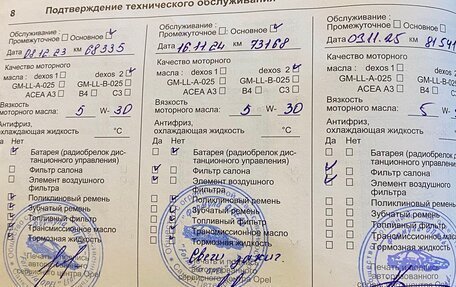 8 Подтверждение технического обслуживания
Обслуживание :
Промежуточное □ Основное ☑
Дата 08.12.23 км 68335
Качество моторного
масла : dexos 1 □ dexos 2 ☑
GM-LL-A-025 □ GM-LL-B-025 □
ACEA A3 □ B4 □ C3 □
Вязкость
моторного масла: 5 W- 30
Антифриз,
охлаждающая жидкость °C
Да Нет
Батарея (радиобрелок дис-
танционного управления)
Фильтр салона
Элемент воздушного
фильтра
Поликлиновый ремень
Зубчатый ремень
Топливный фильтр
Трансмиссионное масло
Тормозная жидкость
Печать
сервисного центра Opel
Обслуживание :
Промежуточное □ Основное ☑
Дата 16.11.24 км 73168
Качество моторного
масла : dexos 1 □ dexos 2 ☑
GM-LL-A-025 □ GM-LL-B-025 □
ACEA A3 □ B4 □ C3 □
Вязкость
моторного масла: 5 W- 30
Антифриз,
охлаждающая жидкость °C
Да Нет
Батарея (радиобрелок дис-
танционного управления)
Фильтр салона
Элемент воздушного
фильтра
Поликлиновый ремень
Зубчатый ремень
Топливный фильтр
Трансмиссионное масло
Тормозная жидкость
Свечи зажиг.
Печать и
сервисного центра Opel
Обслуживание :
Промежуточное □ Основное
Дата 03.11.25 км 81541
Качество моторного
масла : dexos 1 □ dexos 2
GM-LL-A-025 □ GM-LL-B-025
ACEA A3 □ B4 □ C3
Вязкость
моторного масла: 5 W-
Антифриз,
охлаждающая жидкость
Да Нет
Батарея (радиобрелок дис-
танционного управления)
Фильтр салона
Элемент воздушного
фильтра
Поликлиновый ремень
Зубчатый ремень
Топливный фильтр
Трансмиссионное масло
Тормозная жидкость
Печать
авторизованного
сервисного центра Opel